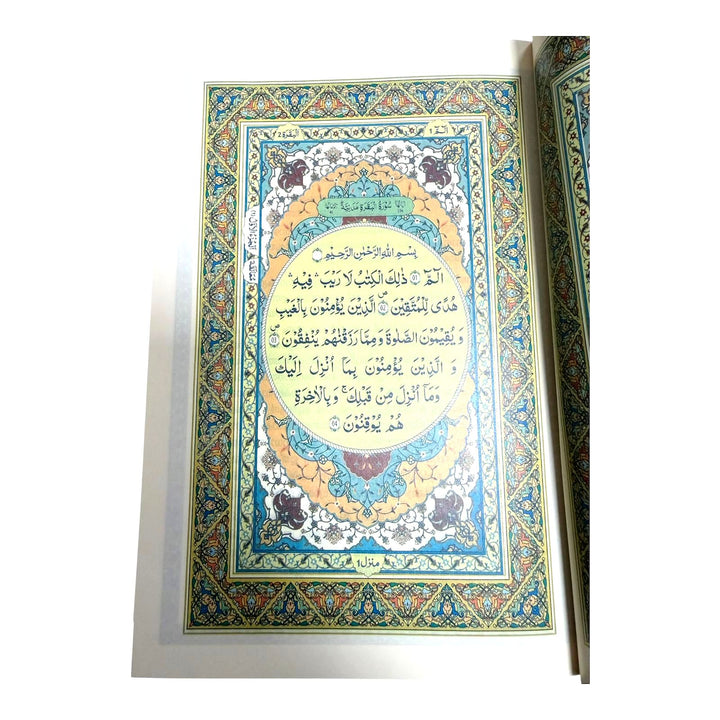 الٓمّٓ ١
البقرة ٢
سُوْرَةُ الْبَقَرَةِ مَدَنِيَّةٌ
بِسْمِ اللّٰهِ الرَّحْمٰنِ الرَّحِيْمِ
الٓمّٓ ۝١ ذٰلِكَ الْكِتٰبُ لَا رَيْبَ ۛ فِيْهِ ۛ
هُدًى لِّلْمُتَّقِيْنَ ۝٢ۙ الَّذِيْنَ يُؤْمِنُوْنَ بِالْغَيْبِ
وَ يُقِيْمُوْنَ الصَّلٰوةَ وَ مِمَّا رَزَقْنٰهُمْ يُنْفِقُوْنَ ۝٣ۙ
وَ الَّذِيْنَ يُؤْمِنُوْنَ بِمَاۤ اُنْزِلَ اِلَيْكَ
وَ مَاۤ اُنْزِلَ مِنْ قَبْلِكَ ۚ وَ بِالْاٰخِرَةِ
هُمْ يُوْقِنُوْنَ ۝٤
منزل ١